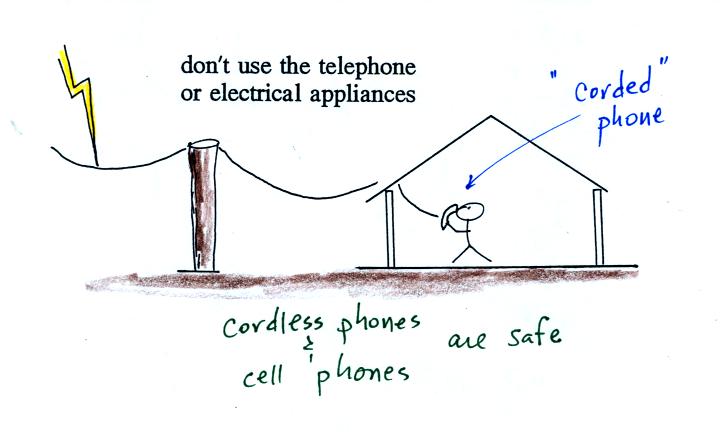 don't use the telephone
or electrical appliances
"corded"
phone
cordless phones
&
cell phones
are safe